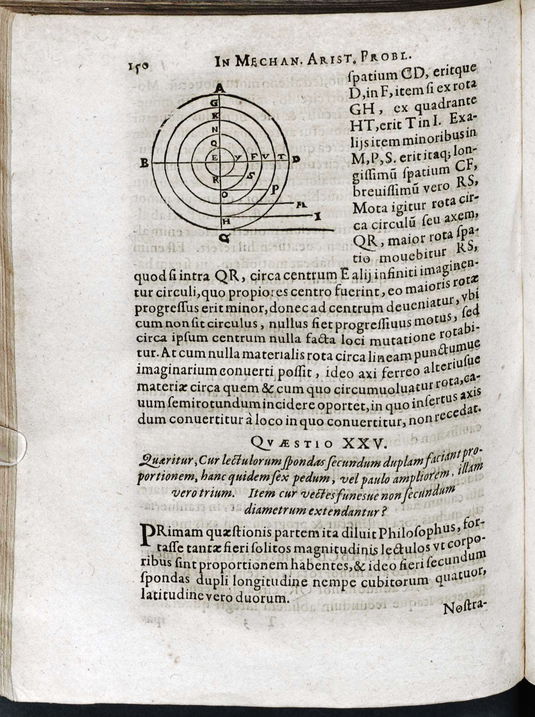 150 IN MECHAN. ARIST. PROBL.
A
G
K
N
Q
B E Y F V T D
R S
O P
M
H I
C
spatium CD, eritque
D, in F, item si ex rota
GH, ex quadrante
HT, erit T in I. Exa-
lijs item minoribus in
M, P, S. erit itaq; lon-
gissimũ spatium CF,
breuissimũ vero RS,
Mota igitur rota cir-
ca circulũ seu axem,
QR, maior rota spa-
tio mouebitur RS,
quod si intra QR, circa centrum E alij infiniti imaginen-
tur circuli, quo propiores centro fuerint, eo maioris rotæ
progressus erit minor, donec ad centrum deueniatur, vbi
cum non sit circulus, nullus fiet progressiuus motus, sed
circa ipsum centrum nulla facta loci mutatione rotabi-
tur. At cum nulla materialis rota circa lineam punctumue
imaginarium conuerti possit, ideo axi ferreo alteriusue
materiæ circa quem & cum quo circumuoluatur rota, ca-
uum semirotundum incidere oportet, in quo insertus axis
dum conuertitur à loco in quo conuertitur, non recedat.
QVÆSTIO XXV.
Quæritur, Cur lectulorum spondas secundum duplam faciant pro-
portionem, hanc quidem sex pedum, vel paulo ampliorem, illam
vero trium. Item cur vectes funesue non secundum
diametrum extendantur?
PRimam quæstionis partem ita diluit Philosophus, for-
tasse tantæ fieri solitos magnitudinis lectulos vt corpo-
ribus sint proportionem habentes, & ideo fieri secundum
spondas dupli longitudine nempe cubitorum quatuor,
latitudine vero duorum.
Nostra-